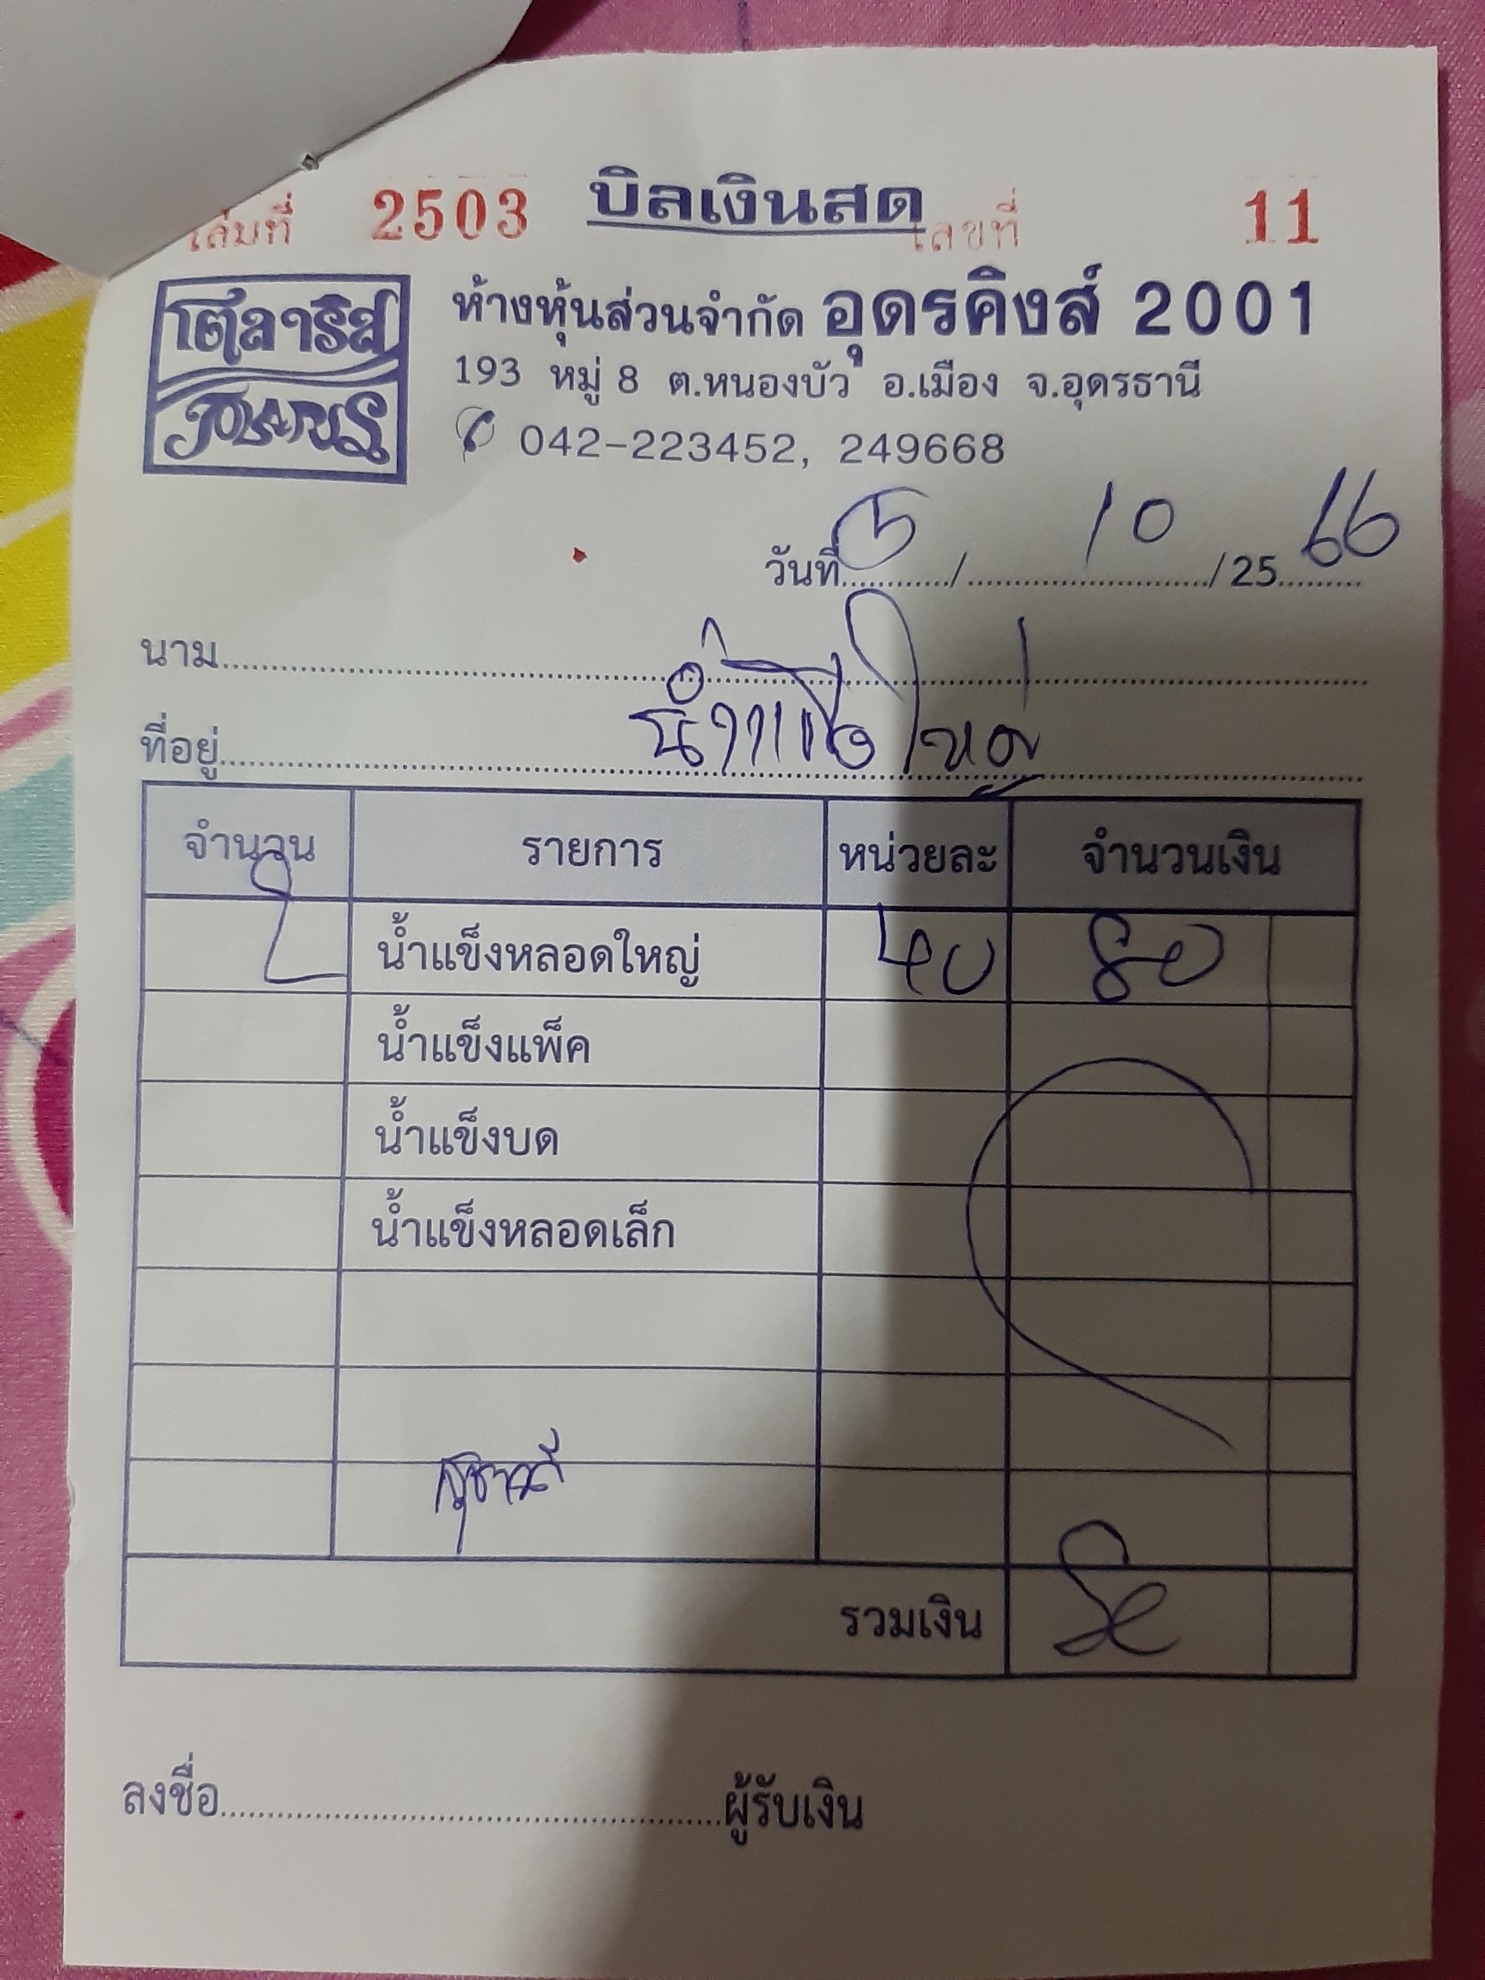 เล่มที่ 2503 บิลเงินสด เลขที่ 11
โตลาริส
ห้างหุ้นส่วนจำกัด อุดรคิงส์ 2001
193 หมู่ 8 ต.หนองบัว อ.เมือง จ.อุดรธานี
042-223452, 249668
วันที่ 5 / 10 /25 66
นาม
ที่อยู่
จำนวน รายการ หน่วยละ จำนวนเงิน
2 น้ำแข็งหลอดใหญ่ 40 80
น้ำแข็งแพ็ค
น้ำแข็งบด
น้ำแข็งหลอดเล็ก
รวมเงิน 80
ลงชื่อ ผู้รับเงิน